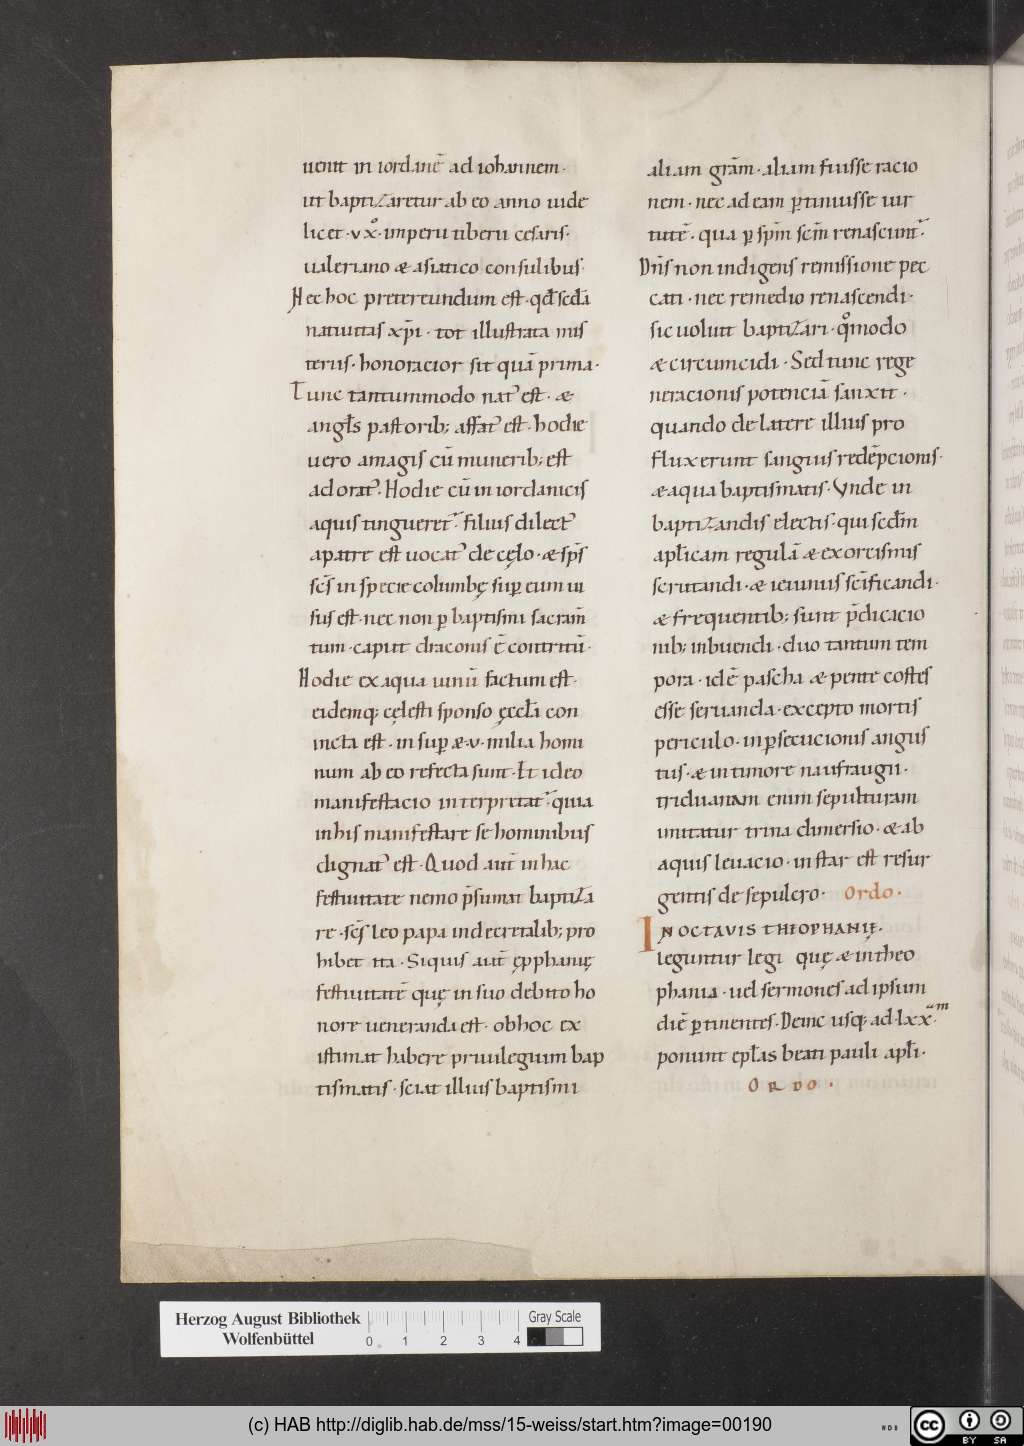 uenit in iordanē ad iohannem·
ut baptizaretur ab eo anno uide
licet·vx̊·imperii tiberii cesaris·
ualeriano & asiatico consulibus·
Nec hoc pretereundum est·qđ scďa
natiuitas xp̄i·tot illustrata mis
teriis·honoracior sit quā prima·
Tunc tantummodo nat᾿ est·&
angłs pastorib;affat᾿ est·hodie
uero amagis cū munerib;est
adorat᾿·Hodie cū in iordanicis
aquis tingueret᾿·filius dilect᾿
apatre est uocat᾿ de cęlo·&sp̄s
sc̄s in specie columbę suꝑ eum ui
sus est·nec non ꝑ baptismi sacram̄
tum·caput draconis ē contritū·
Hodie ex aqua uinū factum est·
eidemq; cęlesti sponso ęccła con
incta est·in suꝑ &·v·milia homi
num ab eo refecta sunt·Et ideo
manifestacio interpretat᾿·quia
in his manifestare se hominibus
dignat᾿ est·Quod aut̄ in hac
festiuitate nemo p̄sumat baptiza
re·sc̄s leo papa in decretalib;pro
hibet ita·Siquis aut̄ ępphanię
festiuitatē quę in suo debito ho
nore ueneranda est·obhoc ex
istimat habere priuilegium bap
tismatis·sciat illius baptismi
aliam grām·aliam fuisse racio
nem·nec ad eam ꝑtinuisse uir
tutē·qua ꝑ sp̄m sc̄m renascunt᾿·
Dn̄s non indigens remissione pec
cati·nec remedio renascendi·
sic uoluit baptizari·qͦmodo
& circumcidi·Sed tunc rege
neracionis potenciā sanxit·
quando de latere illius pro
fluxerunt sanguis redēpcionis·
& aqua baptismatis·Vnde in
baptizandis electis·qui scďm
aplicam regulā & exorcismis
scrutandi·& ieiuniis sc̄ificandi·
& frequentib;sunt p̄dicacio
nib;inbuendi·duo tantum tem
pora·idē pascha & pente costes
esse seruanda·excepto mortis
periculo·in ꝑsecucionis angus
tiis·& in timore naufragii·
triduanam enim sepulturam
imitatur trina dimersio·& ab
aquis leuacio·instar est resur
gentis de sepulcro· Ordo·
IN OCTAVIS THEOPHANIĘ·
leguntur legi quę & in theo
phania·uel sermones ad ipsum
diē ꝑtinentes·Deinc usq; ad·lxx·ᵃᵐ
ponunt epłas beati pauli apłi·
ORDO·
Herzog August Bibliothek
Wolfenbüttel
0 1 2 3 4
Gray Scale
(c) HAB http://diglib.hab.de/mss/15-weiss/start.htm?image=00190
cc
BY SA